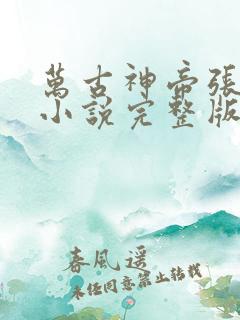 萬古神帝張
小說完整版
春風遥
未经同意禁止转载